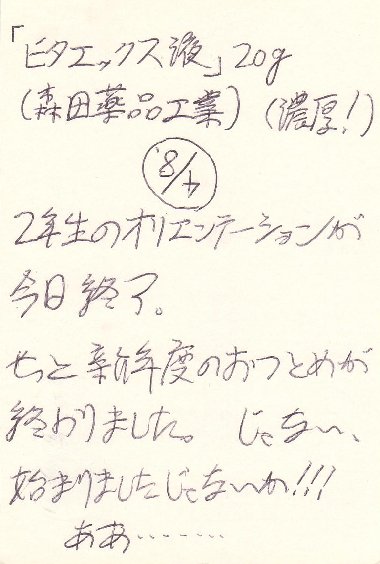 「ビタエックス液」20g
(森田薬品工業) (濃厚!)
'8/4
2年生のオリエンテーションが
今日終了。
やっと新年度のおつとめが
終わりました。 じゃない、
始まりましたじゃないか!!!
ああ………